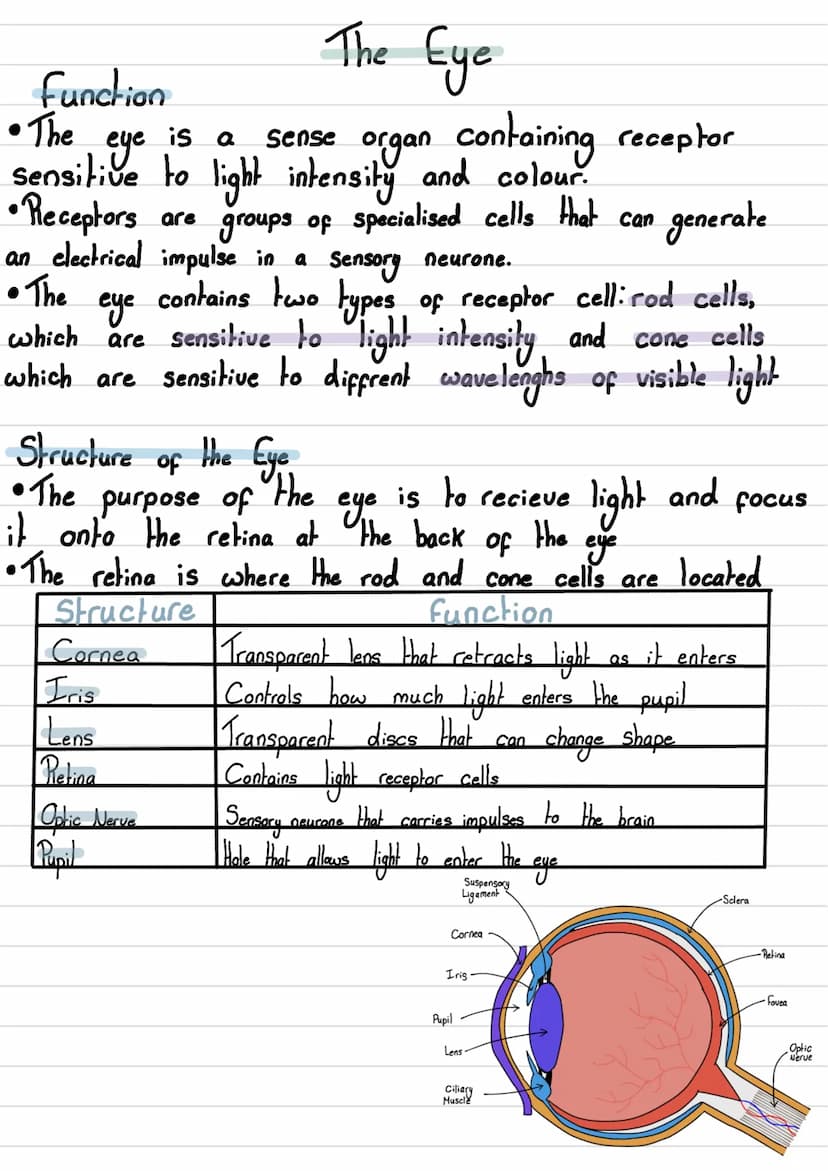 The Eye
Function
• The eye is a sense organ containing receptor
sensitive to light intensity and colour.
• Receptors are groups of specialised cells that can generate
an electrical impulse in a sensory neurone.
• The eye contains two types of receptor cell: rod cells,
which are sensitive to light intensity and cone cells
which are sensitive to diffrent wavelenghs of visible light
Structure of the Eye
• The purpose of the eye is to recieve light and focus
it onto the retina at the back of the eye
• The retina is where the rod and cone cells are located
Structure Function
Cornea Transparent lens that retracts light as it enters
Iris Controls how much light enters the pupil
Lens Transparent discs that can change shape
Retina Contains light receptor cells
Optic Nerve Sensory neurone that carries impulses to the brain
Pupil Hole that allows light to enter the eye
Suspensory
Ligament
Cornea
Iris
Pupil
Lens
Ciliary
Muscle
Sclera
Retina
Fovea
Optic
Nerve